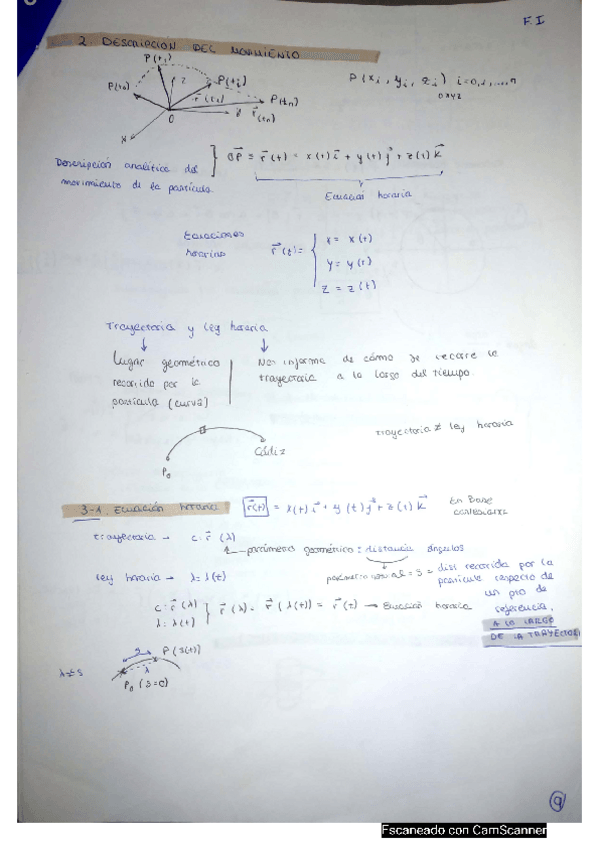 F.I
2. DESCRIPCIÓN DEL MOVIMIENTO
P(t₁)
P(t₀)
z
P(tᵢ)
P(xᵢ, yᵢ, zᵢ) i=0,1,...,n
P(tₙ)
OXYZ
r⃗(tₙ)
O
X
Descripción analítica del
movimiento de la partícula
OP⃗ ≡ r⃗(t) = x(t)i⃗ + y(t)j⃗ + z(t)k⃗
Ecuación horaria
Ecuaciones
horarias
r⃗(t) = {
x = x(t)
y = y(t)
z = z(t)
Trayectoria y ley horaria
Lugar geométrico
recorrido por la
partícula (curva)
Nos informa de cómo se recorre la
trayectoria a lo largo del tiempo.
trayectoria ≠ ley horaria
Cádiz
P₀
3-1. Ecuación horaria r⃗(t) = x(t)i⃗ + y(t)j⃗ + z(t)k⃗
En Base
cartesiana
trayectoria → c: r⃗(λ)
parámetro geométrico: distancia ángulos
ley horaria → λ = λ(t)
= S = dist recorrida por la
partícula respecto de
un pto de
referencia,
A LO LARGO
DE LA TRAYECTORIA
c: r⃗(λ)
λ = λ(t)
} r⃗(λ) = r⃗(λ(t)) = r⃗(t) → Ecuación horaria
λ≠S
S
P(S(t))
λ
P₀ (S=0)
9
Escaneado con CamScanner